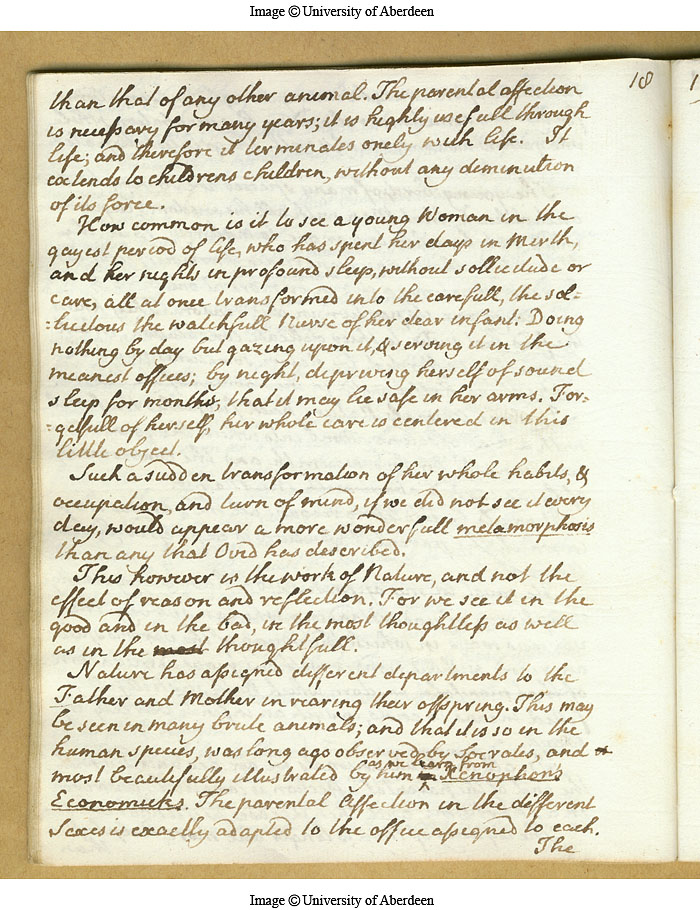 Image © University of Aberdeen
18
than that of any other animal. The parental affection
is necessary for many years; it is highly usefull through
life; and therefore it terminates onely with life. It
extends to childrens children, without any diminution
of its force.
How common is it to see a young Woman in the
gayest period of life, who has spent her days in Mirth,
and her nights in profound sleep, without sollicitude or
care, all at once transformed into the carefull, the sol-
-licitous the watchfull Nurse of her dear infant: Doing
nothing by day but gazing upon it, & serving it in the
meanest offices; by night, depriving herself of sound
sleep for months, that it may lie safe in her arms. For-
-getfull of herself, her whole care is centered in this
little object.
Such a sudden transformation of her whole habits, &
occupation, and turn of mind, if we did not see it every
day, would appear a more wonderfull metamorphosis
than any that Ovid has described.
This however is the work of Nature, and not the
effect of reason and reflection. For we see it in the
good and in the bad, in the most thoughtless as well
as in the most thoughtfull.
Nature has assigned different departments to the
Father and Mother in rearing their offspring. This may
be seen in many brute animals; and that it is so in the
human species, was long ago observed by Socrates, and
most beautifully illustrated by him as we learn from Xenophon's
Economicks. The parental Affection in the different
Sexes is exactly adapted to the office assigned to each.
The
Image © University of Aberdeen